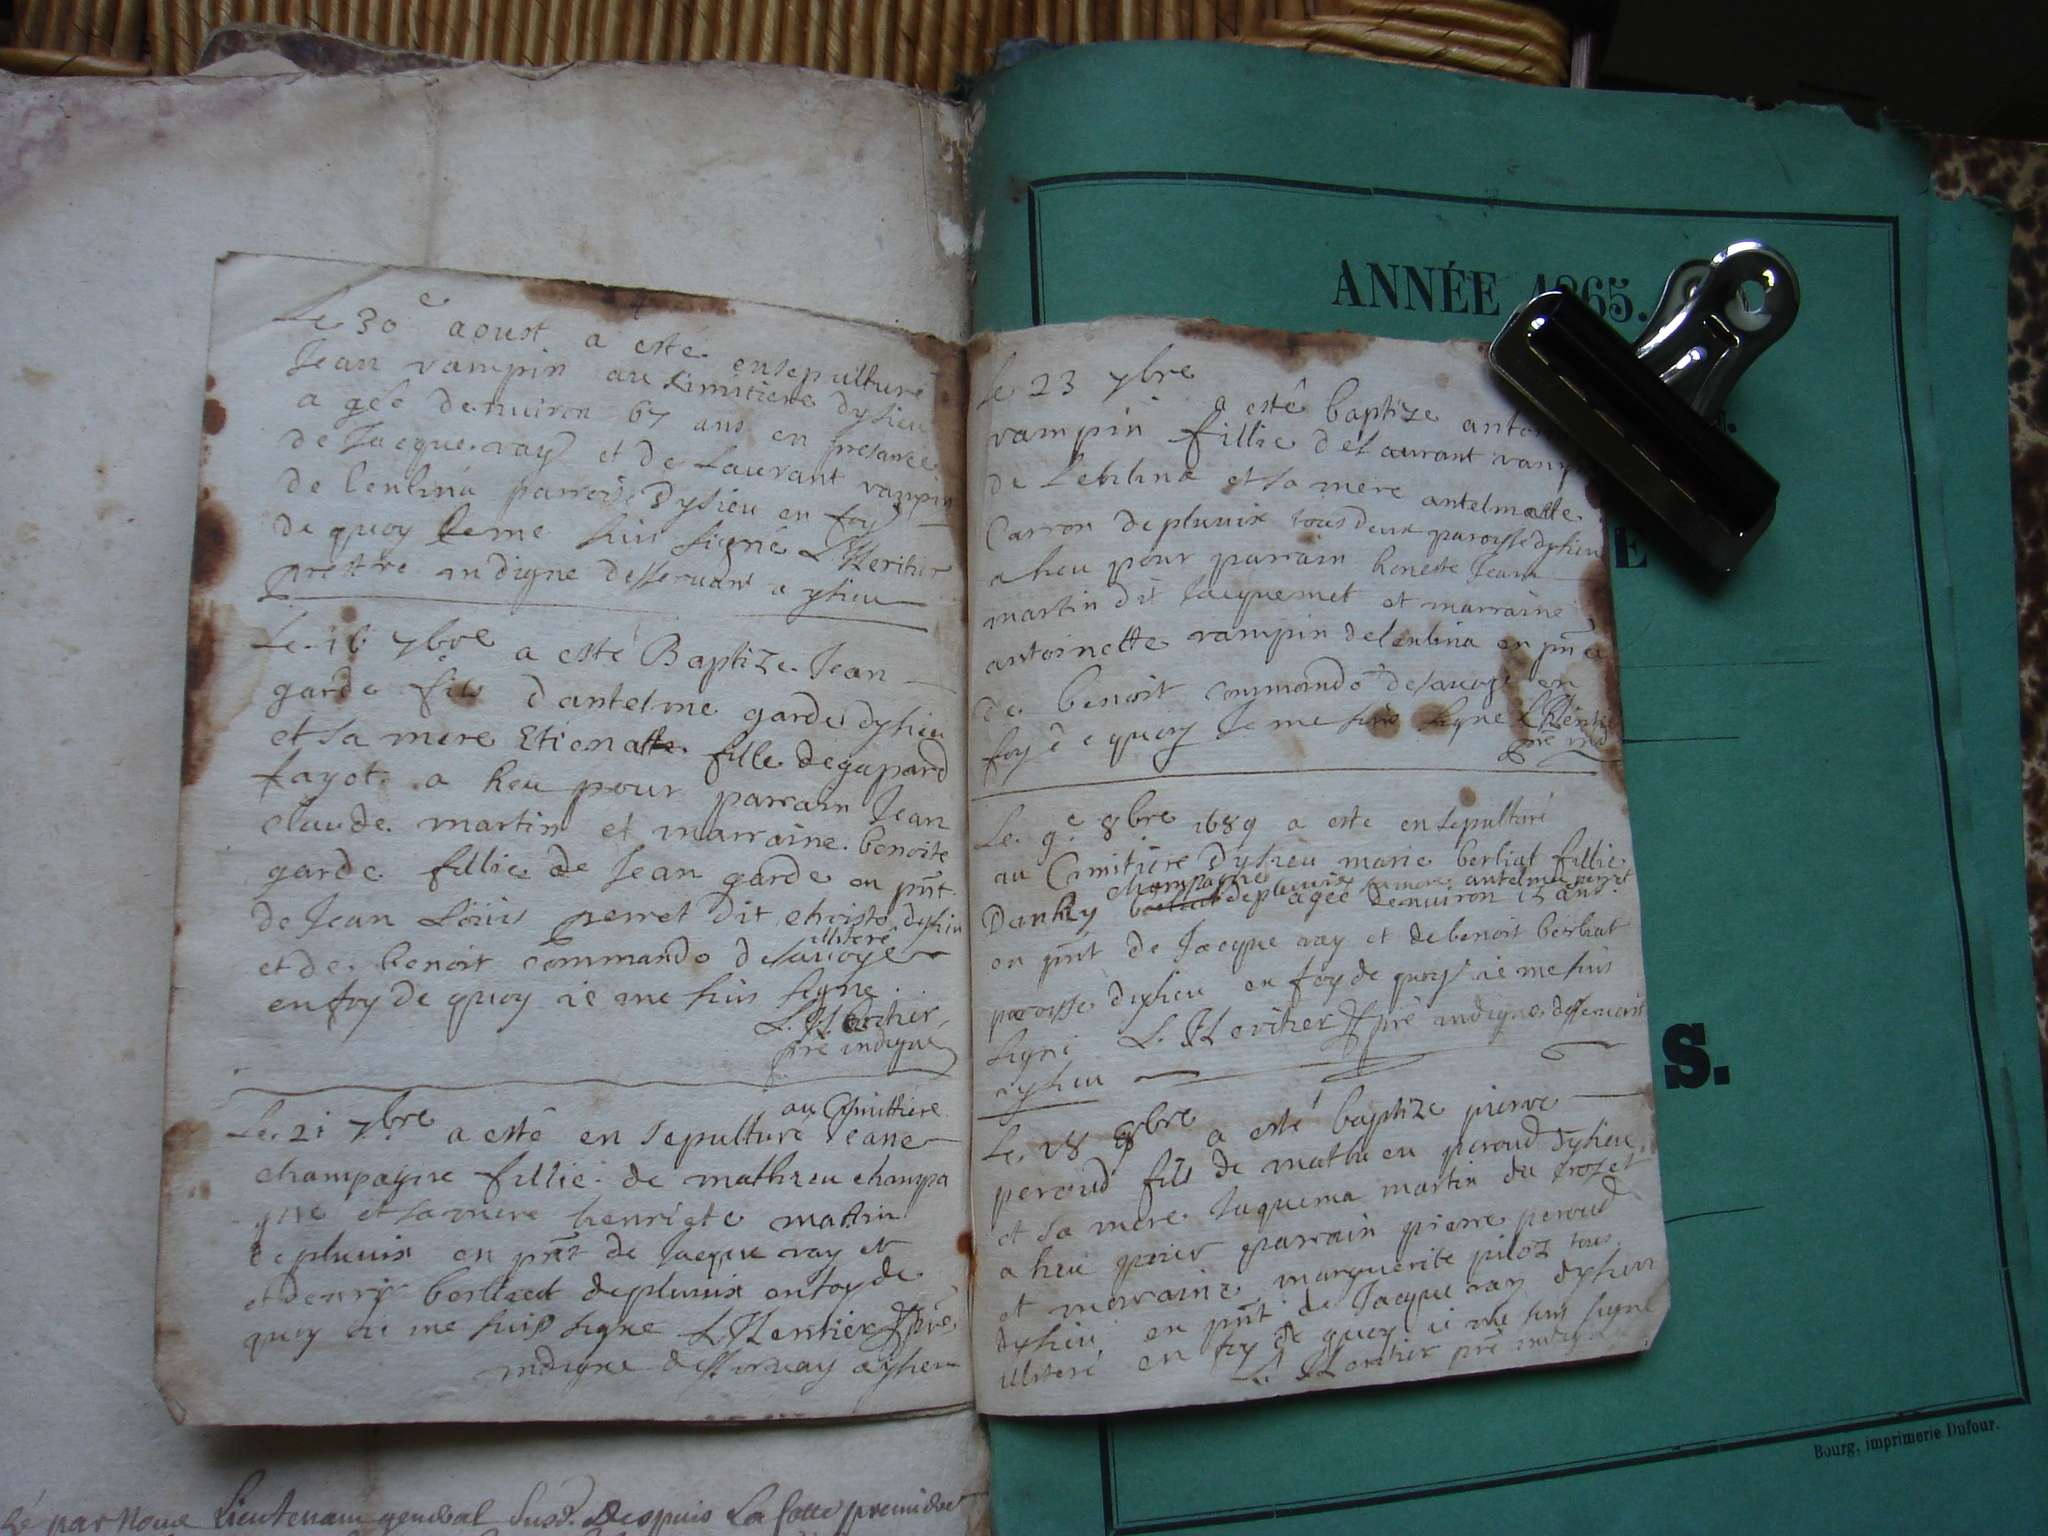 Le 30e aoust a esté ensepulturé
Jean vampin au Simitiere dysieu
agée denuiron 67 ans en presance
de Jacque ray et de Laurant vampin
de lentina parroisse dysieu en foy
de quoy Je me suis signé L'Heritier
prestre indigne desseruant a ysieu
Le 16 7bre a esté Baptize Jean
garde fils dantelme garde dysieu
et sa mere Etienatte fille de gaspard
fayot a heu pour parrain Jean
claude martin et marraine benoite
garde fillie de Jean garde en pnt
de Jean Loüis perret dit christo dysieu
et de benoit commando de sauoye illiteré
en foy de quoy ie me suis signe
L. Heritier
pre indigne
Le 21 7bre a esté en sepulturé au Cymittiere Jeane
champagne fillie de mathieu champa
gne et sa mere henrigte martin
de pluuix en pnt de Jacque ray et
et denry berliaet de pluuix en foy de
quoy ie me suis signe L'Heritier pre
indigne desseruay a ysieu
Le 23 7bre
a esté baptize
vampin fillie de Laurant
de Lentina et sa mere antelmatte
Carron de pluuix tous deux paroisse dysieu
a heu pour parrain honeste Jean
martin dit Jacquemet et marraine
antoinette vampin de lentina en pnce
de benoit commando de sauoye en
foy de quoy Je me suis signe L'Heritie
pre ind
Le 9e 8bre 1689 a este ensepulturé
au Cimitiere dysieu marie berliat fillie
champagne
Danhry de pluuix sa mere antelma perret agée denuiron 15 ans
en pnt de Jacque ray et de benoit berliat
paroisse dysieu en foy de quoy ie me suis
signé L. Heritier pré indigne desseruant
aysieu
Le 18 8bre a esté baptize pierre
peroud fils de mathieu peroud dysieu
et sa mere Jaquema martin du crozet
a heu pour parrain pierre peroud
et marraine marguerite piloz tous
dysieu en pnt de Jacque ray dysieu
illiteré en foy de quoy ie me suis signe
L. Heritier pré indigne
ANNÉE 1865.
E
S.
Bourg, imprimerie Dufour.
par Nous Lieutenam general susd. Despuis La Cotte premiere